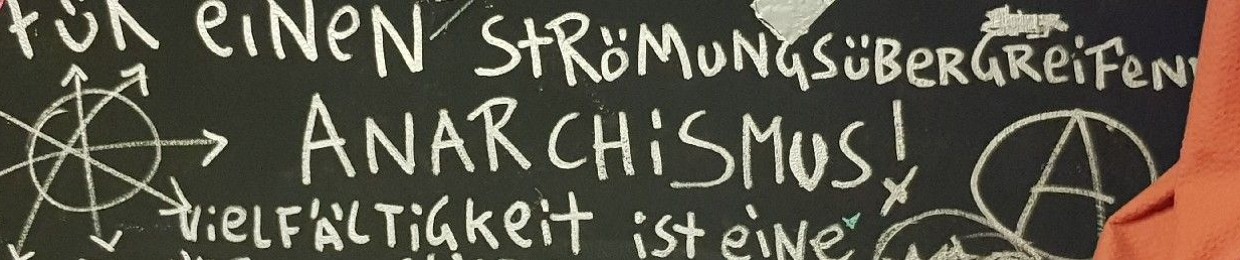 FÜR EiNEN STRÖMUNGSÜBERGREiFEN
ANARCHiSMUS!
ViELFÄLTiGKEiT iST EiNE